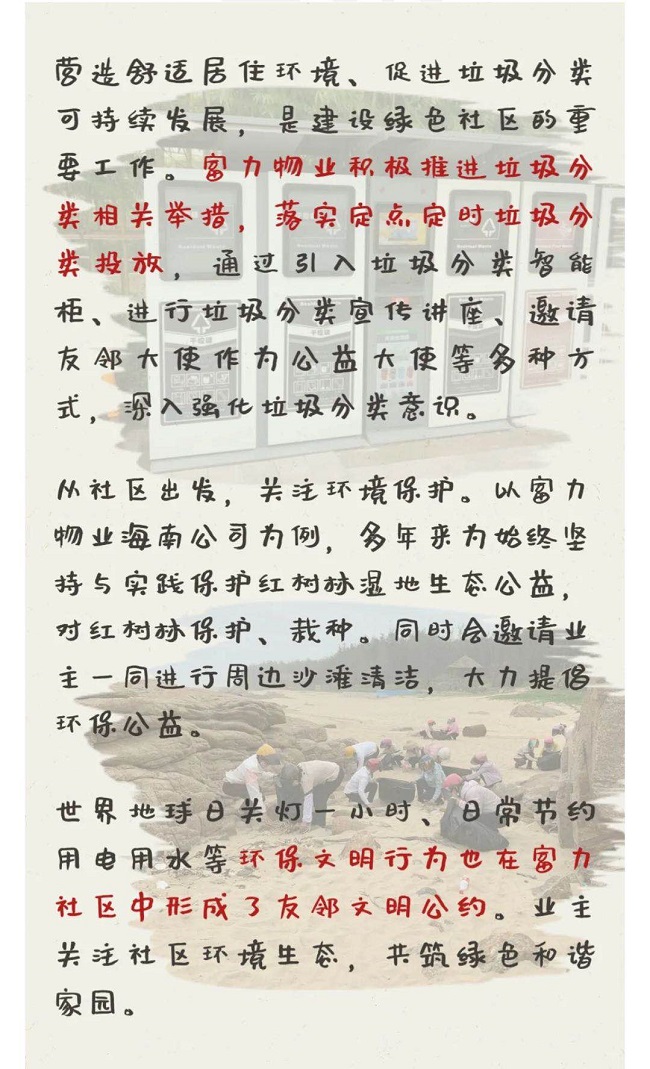 营造舒适居住环境、促进垃圾分类
可持续发展，是建设绿色社区的重
要工作。富力物业积极推进垃圾分
类相关举措，落实定点定时垃圾分
类投放，通过引入垃圾分类智能
柜、进行垃圾分类宣传讲座、邀请
友邻大使作为公益大使等多种方
式，深入强化垃圾分类意识。
从社区出发，关注环境保护。以富力
物业海南公司为例，多年来为始终坚
持与实践保护红树林湿地生态公益，
对红树林保护、栽种。同时会邀请业
主一同进行周边沙滩清洁，大力提倡
环保公益。
世界地球日关灯一小时、日常节约
用电用水等环保文明行为也在富力
社区中形成了友邻文明公约。业主
关注社区环境生态，共筑绿色和谐
家园。